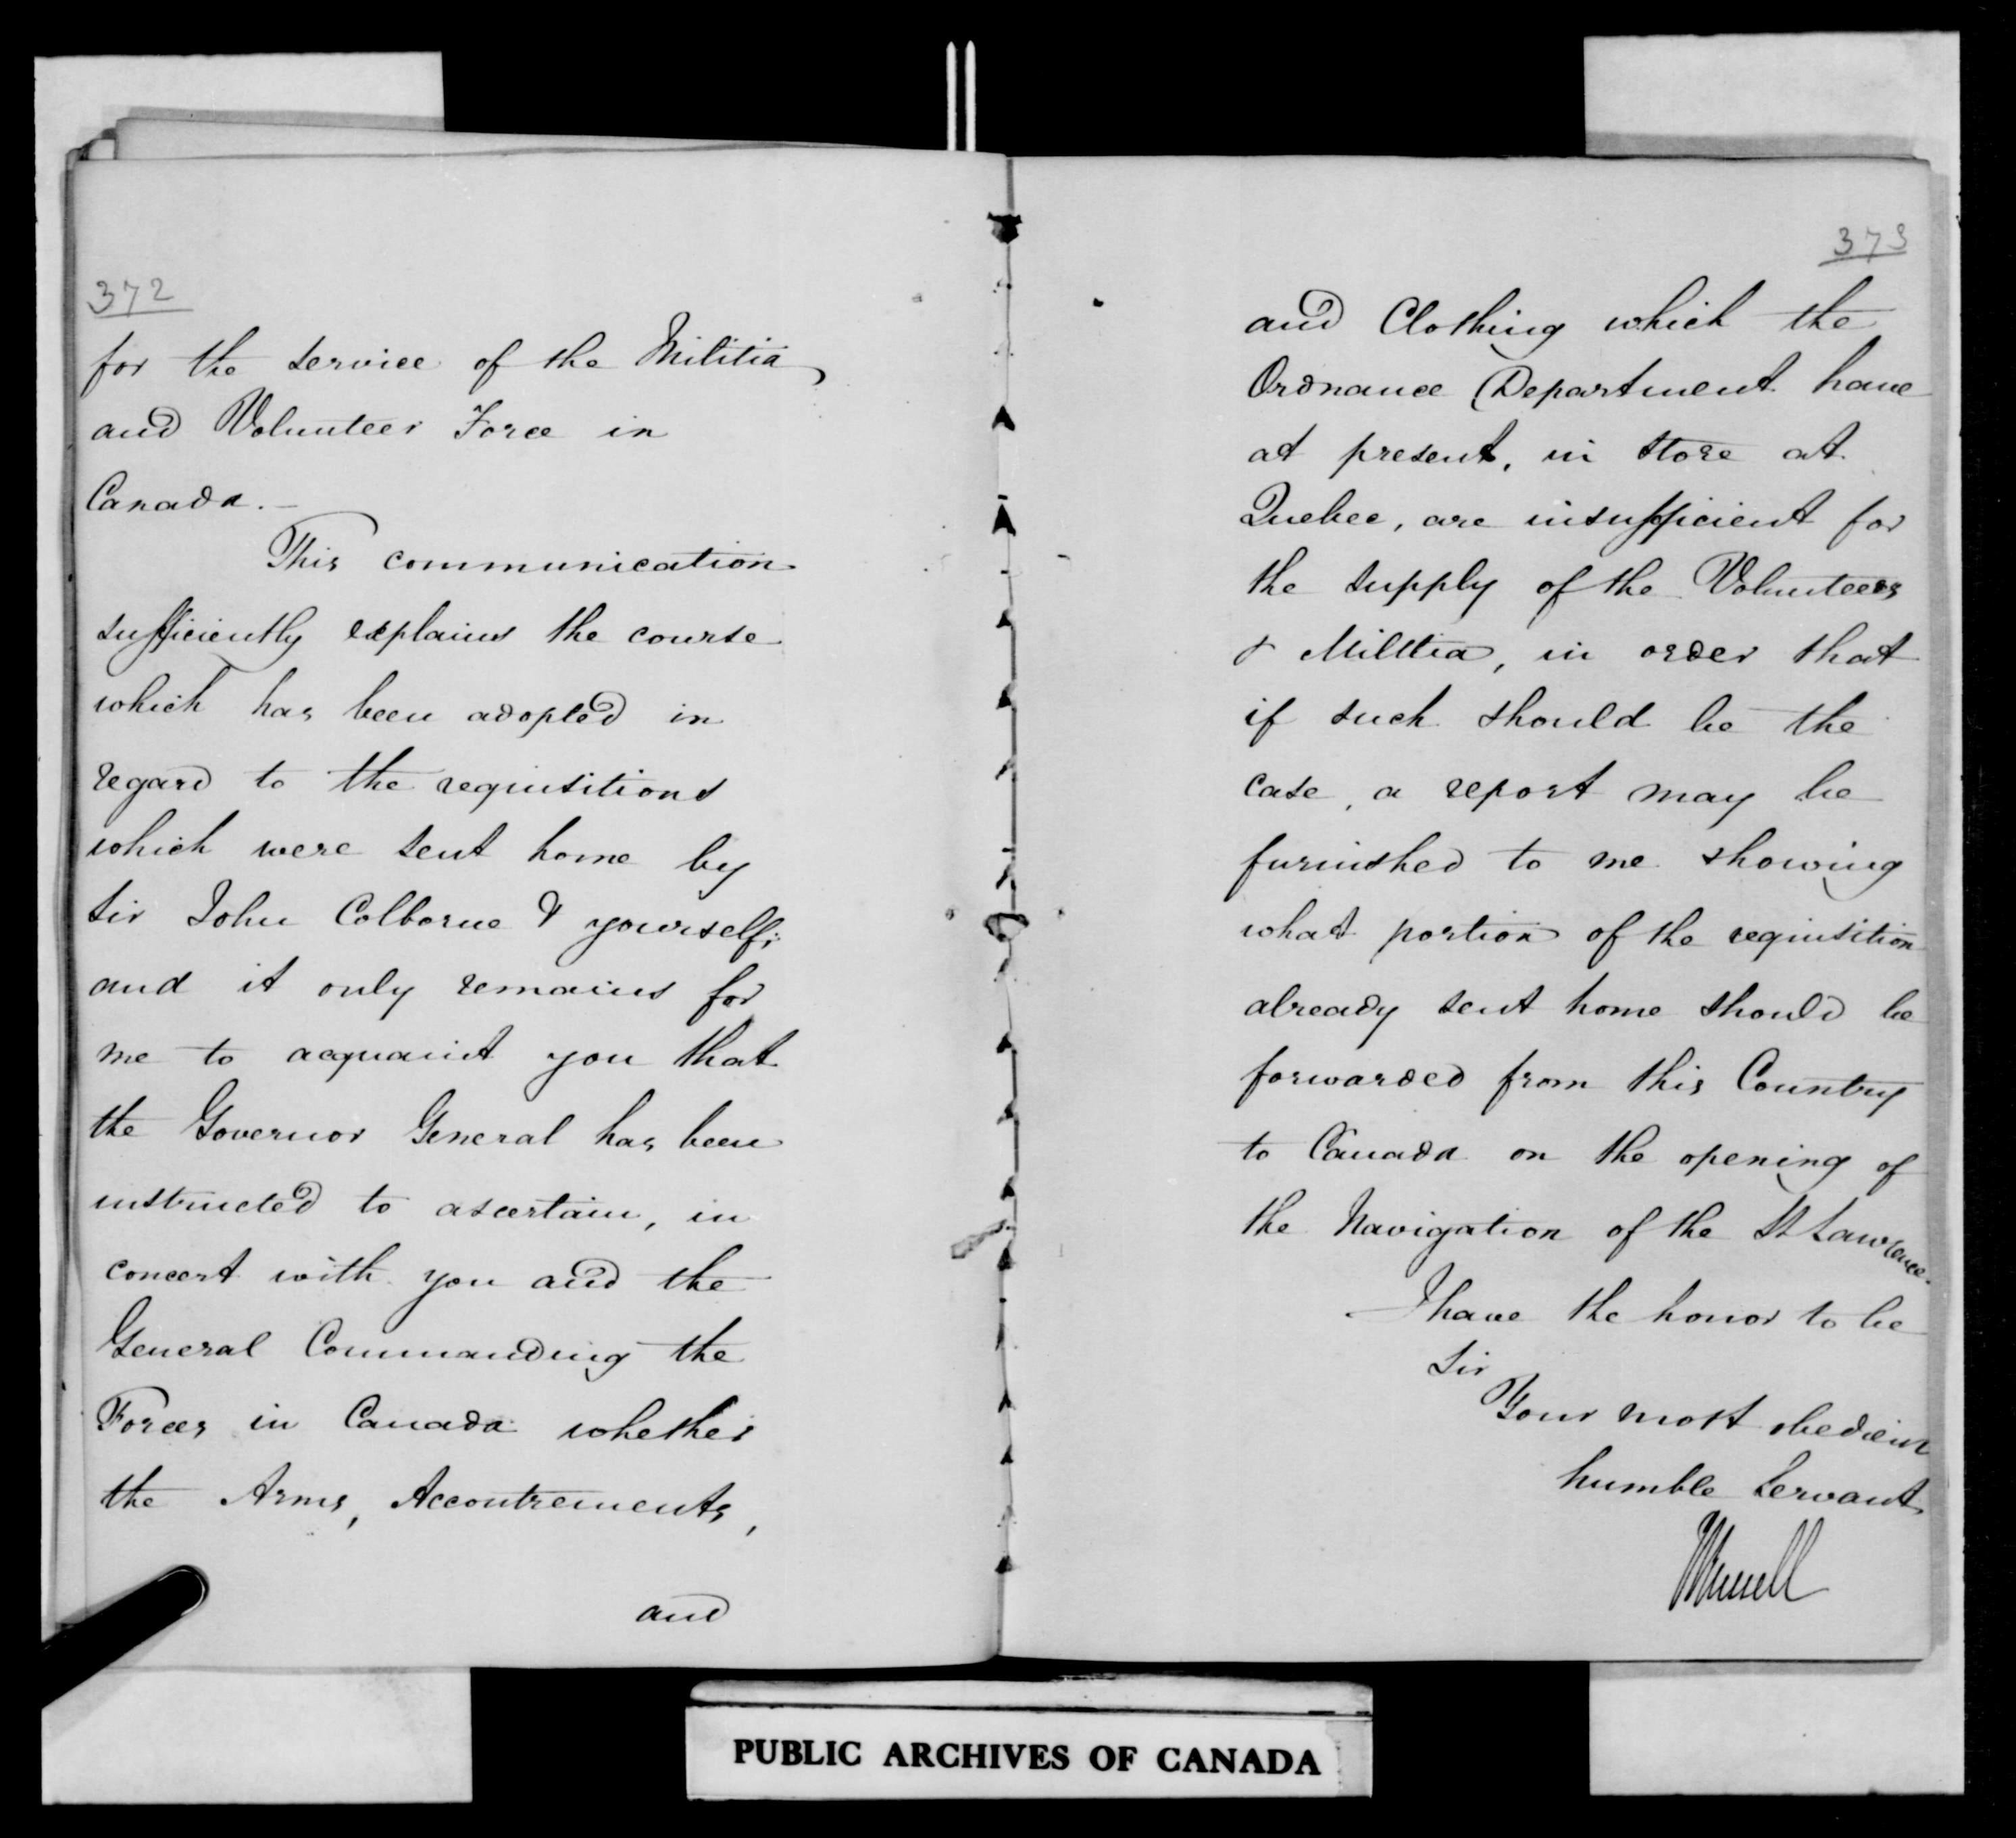 372
for the service of the Militia,
and Volunteer Force in
Canada. —
This communication
sufficiently explains the course
which has been adopted in
regard to the requisitions
which were sent home by
Sir John Colborne & yourself;
and it only remains for
me to acquaint you that
the Governor General has been
instructed to ascertain, in
concert with you and the
General Commanding the
Forces in Canada whether
the Arms, Accoutrements,
and
373
and Clothing which the
Ordnance Department have
at present, in store at
Quebec, are insufficient for
the supply of the Volunteers
& Militia, in order that
if such should be the
case, a report may be
furnished to me showing
what portion of the requisition
already sent home should be
forwarded from this Country
to Canada on the opening of
the Navigation of the St Lawrence.
I have the honor to be
Sir
Your most obedient
humble Servant,
JRussell
PUBLIC ARCHIVES OF CANADA